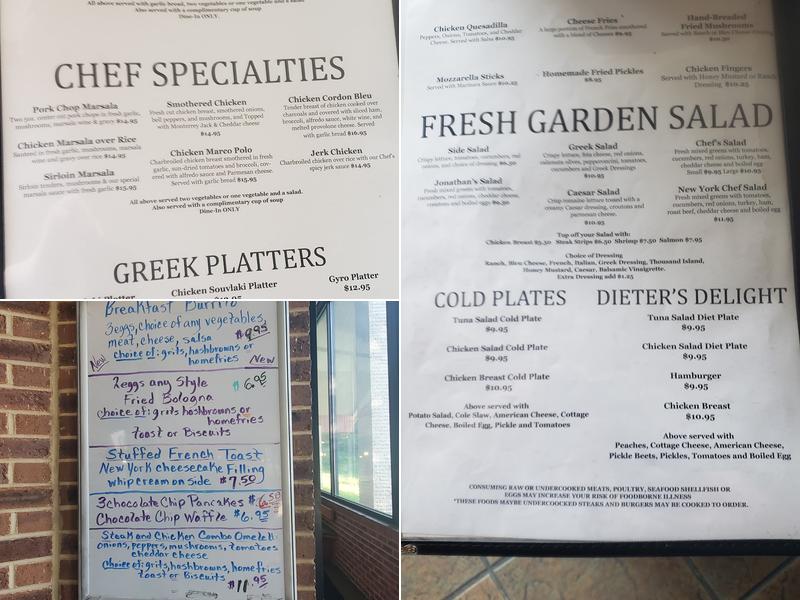 All above served with garlic bread, two vegetables or one vegetable and a salad
Also served with a complimentary cup of soup
Dine-In ONLY
CHEF SPECIALTIES
Pork Chop Marsala
Two 5oz. center cut pork chops in fresh garlic,
mushrooms, marsala wine & gravy $14.95
Chicken Marsala over Rice
Sauteed in fresh garlic, mushrooms, marsala
wine and gravy over rice $14.95
Sirloin Marsala
Sirloin tenders, mushrooms & our special
marsala sauce with fresh garlic $15.95
Smothered Chicken
Fresh cut chicken breast, smothered onions,
bell peppers, and mushrooms, and Topped
with Monterey Jack & Cheddar cheese
$14.95
Chicken Marco Polo
Charbroiled chicken breast smothered in fresh
garlic, sun-dried tomatoes and broccoli, cov-
ered with alfredo sauce and Parmesan cheese.
Served with garlic bread $15.95
Chicken Cordon Bleu
Tender breast of chicken cooked over
charcoals and covered with sliced ham,
broccoli, alfredo sauce, white wine, and
melted provolone cheese. Served
with garlic bread $16.95
Jerk Chicken
Charbroiled chicken over rice with our Chef's
spicy jerk sauce $14.95
All above served two vegetables or one vegetable and a salad.
Also served with a complimentary cup of soup
Dine-In ONLY
GREEK PLATTERS
Platter
Chicken Souvlaki Platter
Gyro Platter
$12.95
Chicken Quesadilla
Peppers, Onions, Tomatoes, and Cheddar
Cheese. Served with Salsa $10.95
Cheese Fries
A large portion of French Fries smothered
with a blend of Cheeses $9.95
Hand-Breaded
Fried Mushrooms
Served with Ranch or Bleu Cheese
$10.50
Mozzarella Sticks
Served with Marinara Sauce $10.25
Homemade Fried Pickles
$8.95
Chicken Fingers
Served with Honey Mustard or Ranch
Dressing $10.25
FRESH GARDEN SALAD
Side Salad
Crispy lettuce, tomatoes, cucumbers, red
onions, and choice of dressing $6.50
Jonathan's Salad
Fresh mixed greens with tomatoes,
cucumbers, red onions, cheddar cheese,
croutons and boiled eggs $9.50
Greek Salad
Crispy lettuce, feta cheese, red onions,
calamata olives, pepperoncini, tomatoes,
cucumbers and Greek Dressings
$10.95
Caesar Salad
Crisp romaine lettuce tossed with a
creamy Caesar dressing, croutons and
parmesan cheese.
$10.95
Chef's Salad
Fresh mixed greens with tomatoes,
cucumbers, red onions, turkey, ham,
cheddar cheese and boiled egg
Small $9.95 Large $10.95
New York Chef Salad
Fresh mixed greens with tomatoes,
cucumbers, red onions, turkey, ham,
roast beef, cheddar cheese and boiled egg
$11.95
Top off your Salad with:
Chicken Breast $5.50 Steak Strips $6.50 Shrimp $7.50 Salmon $7.95
Choice of Dressing
Ranch, Bleu Cheese, French, Italian, Greek Dressing, Thousand Island,
Honey Mustard, Caesar, Balsamic Vinaigrette.
Extra Dressing add $1.25
COLD PLATES
Tuna Salad Cold Plate
$9.95
Chicken Salad Cold Plate
$9.95
Chicken Breast Cold Plate
$10.95
Above served with
Potato Salad, Cole Slaw, American Cheese, Cottage
Cheese, Boiled Egg, Pickle and Tomatoes
DIETER'S DELIGHT
Tuna Salad Diet Plate
$9.95
Chicken Salad Diet Plate
$9.95
Hamburger
$9.95
Chicken Breast
$10.95
Above served with
Peaches, Cottage Cheese, American Cheese,
Pickle Beets, Pickles, Tomatoes and Boiled Egg
CONSUMING RAW OR UNDERCOOKED MEATS, POULTRY, SEAFOOD SHELLFISH OR
EGGS MAY INCREASE YOUR RISK OF FOODBORNE ILLNESS
*THESE FOODS MAYBE UNDERCOOCKED STEAKS AND BURGERS MAY BE COOKED TO ORDER.
Breakfast Burrito
3eggs, choice of any vegetables,
meat, cheese, salsa $9.95
choice of: grits, hashbrowns or
New homefries New
2eggs any Style $6.95
Fried Bologna
choice of: grits hashbrowns or
homefries
toast or Biscuits
Stuffed French Toast
New York cheesecake Filling
whip cream on side $7.50
3chocolate Chip Pancakes $6.50
Chocolate Chip Waffle $6.95
Steak and Chicken Combo Omelett
onions, peppers, mushrooms, tomatoes
cheddar cheese
choice of: grits, hashbrowns, homefries
toast or Biscuits
$11.95